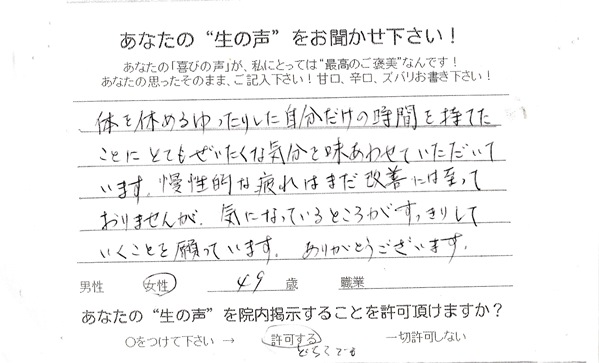 あなたの“生の声”をお聞かせ下さい！
あなたの「喜びの声」が、私にとっては“最高のご褒美”なんです！
あなたの思ったそのまま、ご記入下さい！甘口、辛口、ズバリお書き下さい！
体を休めるゆったりした自分だけの時間を持てた
ことにとてもぜいたくな気分を味あわせていただいて
います。慢性的な疲れはまだ改善には至って
おりませんが、気になっているところがすっきりして
いくことを願っています。ありがとうございます。
男性 女性 49 歳 職業
あなたの“生の声”を院内掲示することを許可頂けますか？
○をつけて下さい → 許可する 一切許可しない
どちらでも